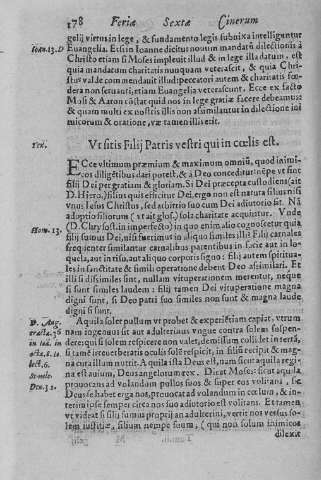 178 Feriæ Sextæ Cinerum
gelij virtus in lege, & fundamento legis subnixa intelliguntur
Ioan.13.D Euangelia. Et si in Ioanne dicitur nouum mandatũ dilectionis à
Christo etiam si Moses impleuit illud & in lege illa datum, est
quia mandatum charitatis nunquam veterascit, & quia Chri-
stus valde commendauit illud: peccatori autem & charitatis fœ-
dera non seruanti, etiam Euangelia veterascunt. Ecce ex facto
Mosi & Aaron
& quam multi ex nostris illis non assimilantur in dilectione ini
micorum & oratione, væ tamen illis erit.
Tex. Vt sitis Filij Patris vestri qui in cœlis est.
ECce vltimum præmium & maximum omniũ, quod inimi-
cos diligẽtibus dari potest, & à Deo conceditur: nẽpe vt sint
filij Dei per gratiam & gloriam. Si Dei præcepta custodiens (ait
D. Hiero.) filius quis efficitur Dei, ergo non est natura filius nisi
vnus Iesus Christus, sed arbitrio suo cum Dei adiutorio fit. Nã
adoptio filiorum (vt ait glos.) sola charitate acquiritur. Vnde
Hom. 13. (D. Chrysost. in imperfecto) in quo enim alio cognoscetur quia
filij sumus Dei, nisi fuerimus in aliquo similes illi? Filij carnales
frequenter similantur carnalibus parentibus in facie aut in lo-
quela, aut in risu, aut aliquo corporis signo: filij autem spiritua-
les in sanctitate & simili operatione debent Deo assimilari. Et
illi si dissimiles sint, nullam vituperationem merentur, neque
si sunt similes laudem: filij tamen Dei vituperatione magna
digni sunt, si Deo patri suo similes non sunt & magna laude
digni si sunt.
D. Aug. Aquila solet pullum vt probet & experiẽtiam capiat, vtrum
tracta.36 nam ingenuus sit aut adulterinus vngue contra solem suspen-
in Ioã. in dere: qui si solem respicere non valet, demissum collidet in terrã,
acta,8.in si tamẽ irreuerberatis oculis solẽ respicit, in filiũ recipit & mag-
lect.6. na cura illum nutrit. A quila ista Deus est, nam sicut aquila regi-
na est auium, Deus angelorum rex. Dicit Moses: sicut aquila
Deu.32. prouocans ad volandum pullos suos & super eos volitans, &c.
Deus se habet erga nos, prouocat ad volandum in cœlum, & in-
terim ipse semper circa nos suo adiutorio est volitans. Et tamen
vt videat si filij sumus proprij an adulterini, vertit nos versus so-
lem iustitiæ, filium nempe suum, (qui non solum inimicos
dilexit